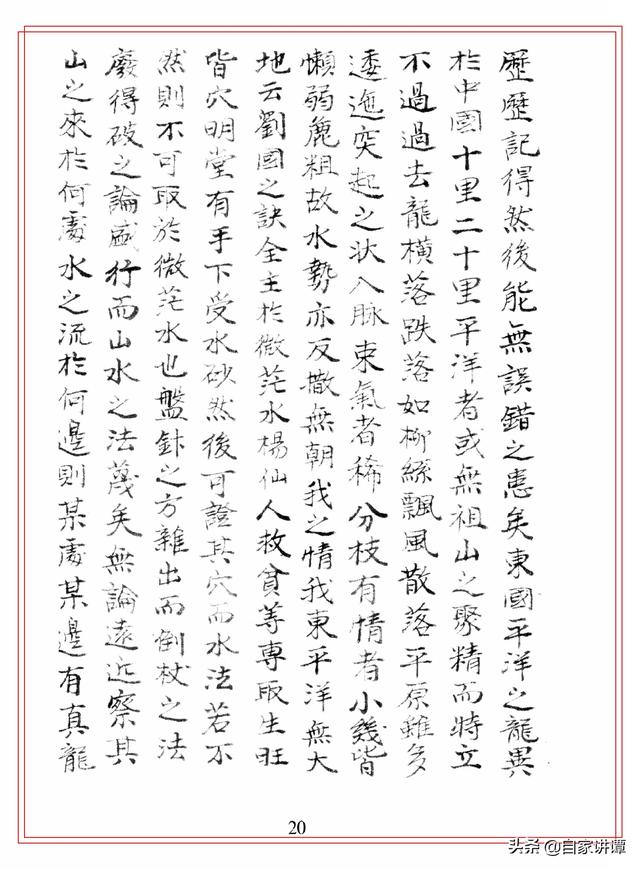 歷歷記得然後能無誤錯之患矣東國平洋之龍異
於中國十里二十里平洋者或無祖山之聚精而特立
不過過去龍橫落跌落如柳絲飄風散落平原雖多
逶迤突起之状入脉束氣者稀分枝有情者小幾皆
懶弱麁粗故水勢亦反撒無朝我之情我東平洋無大
地云劉國之訣全主於微茫水楊仙人救貧等專取生旺
皆穴明堂有手下受水砂然後可證其穴而水法若不
然則不可取於微茫水也盤針之方雜出而倒杖之法
廢得破之論盛行而山水之法蔑矣無論遠近察其
山之來於何處水之流於何邊則某處某邊有真龍
20
头条 @自家讲谭